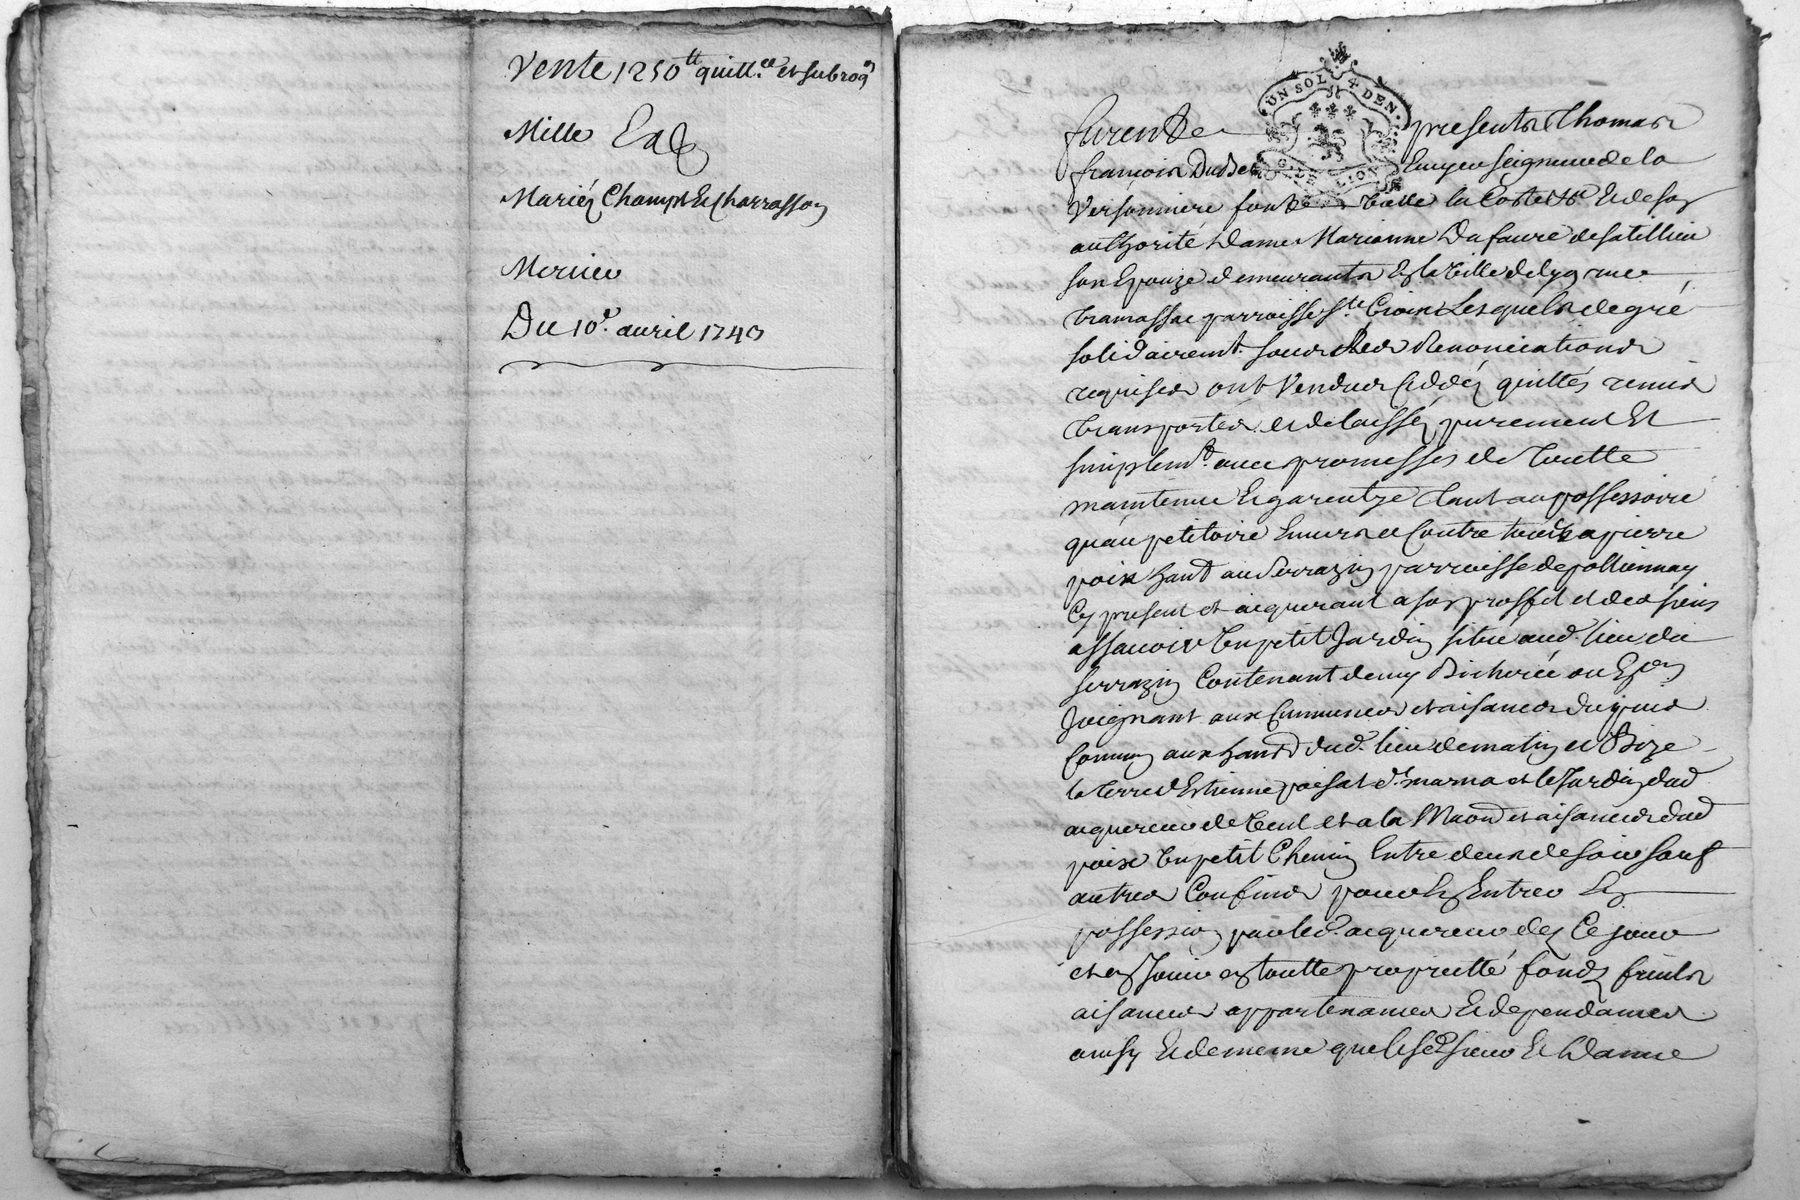 Vente 1250tt quitt.ce et subrog
Mille
Mariés Champt Et Charrasson
Mercier
Du 10e. avril 1743
UN SOL 4 DEN
G DE LION
furent presents Thomas
françois DuBe Ecuyer Seigneur de la
Versonniere la Coste Et de son
authorité Dame Marianne Du faure de satillieu
son Epouze demeurants En la ville de Lyon rue
tramassac parroisse Ste. Croix Lesquels de gré
solidairemt. sous les Renonciations
requises ont Vendus Ceddés quittés remis
transportés et delaissés purement Et
simplemt. avec promesses de toutte
maintenue Et garentye tant au possessoire
qu'au petitoire Envers et Contre tous a pierre
poix hant. au Serrazin parroisse de pollionnay
Cy present et acquerant a son proffit et des siens
assavoir un petit Jardin situé aud. lieu du
serrazin Contenant demy Bicherée ou Eon
Joignant aux Communes et aisances du puis
Commun aux hants dud. lieu de matin et Bize
la terre d'Estienne et le Jardin dud
acquereur de vent et a la Maon et aisances dud
poix un petit Chemin Entre deux de soir sauf
autres Confins pour En Entrer En
possession par led. acquereur dez Ce jour
et en Jouir en toutte proprietté fonds fruits
aisances appartenances Et dependances
ainsy Et de meme que lesd. sieur Et Dame